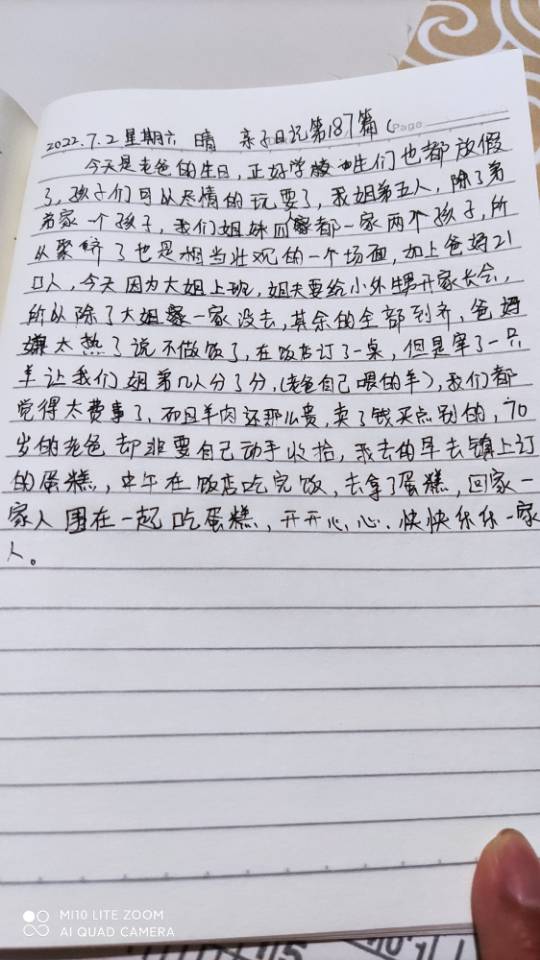 Page
2022.7.2 星期六 晴 亲子日记第187篇(
今天是老爸的生日,正好学校也生们也都放假
了,孩子们可以尽情的玩耍了,我姐弟五人,除了弟
弟家一个孩子,我们姐妹四家都一家两个孩子,所
以聚齐了也是相当壮观的一个场面,加上爸妈21
口人,今天因为大姐上班,姐夫要给小外甥开家长会,
所以除了大姐家一家没去,其余的全部到齐,爸妈
嫌太热了说不做饭了,在饭店订了一桌,但是宰了一只
羊让我们姐弟几人分了分,(老爸自己喂的羊),我们都
觉得太费事了,而且羊肉还那么贵,卖了钱买点别的,70
岁的老爸却非要自己动手收拾,我去的早去镇上订
的蛋糕,中午在饭店吃完饭,去拿了蛋糕,回家一
家人围在一起吃蛋糕,开开心心,快快乐乐一家
人。
MI10 LITE ZOOM
AI QUAD CAMERA